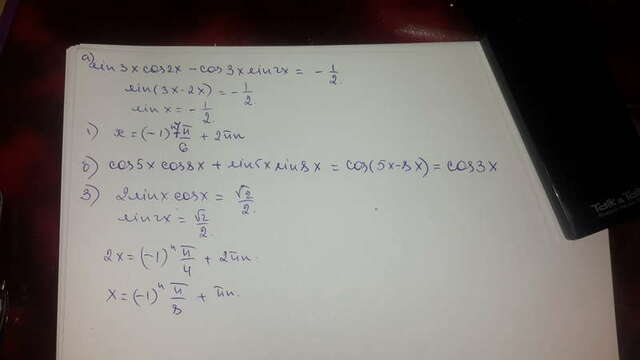 а) sin 3x cos 2x - cos 3x sin 2x = - 1/2.
sin(3x - 2x) = - 1/2
sin x = - 1/2.
1) x = (-1)^(n+1) π/6 + 2πn
б) cos 5x cos 8x + sin 5x sin 8x = cos(5x - 8x) = cos 3x
3) 2 sin x cos x = √2/2.
sin 2x = √2/2.
2x = (-1)^n π/4 + 2πn.
x = (-1)^n π/8 + πn.